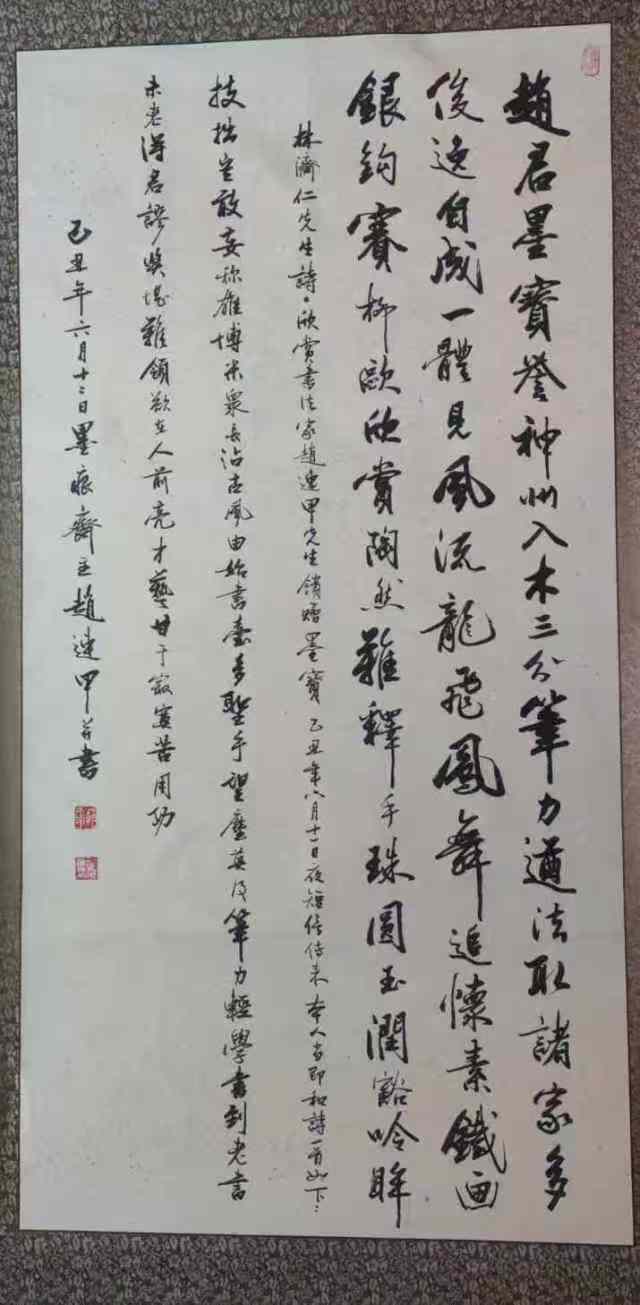 趙君墨寶譽神州入木三分筆力遒法取諸家多
俊逸自成一體見風流龍飛鳳舞追懷素鐵画
銀鈎賽柳歐欣賞陶然難釋手珠圓玉潤豁吟眸
林濟仁先生詩：欣賞書法家趙連甲先生饋贈墨寶 乙丑年八月十一日夜短信傳来 本人当即和詩一首如下：
技拙豈敢妄称雄博采衆長沾古風由始書壹多聖手望塵莫及筆力輕學書到老書
未老得君謬獎愧難領歉在人前亮才藝甘于寂寞苦用功
己丑年六月十二日墨痕齋主趙連甲并書